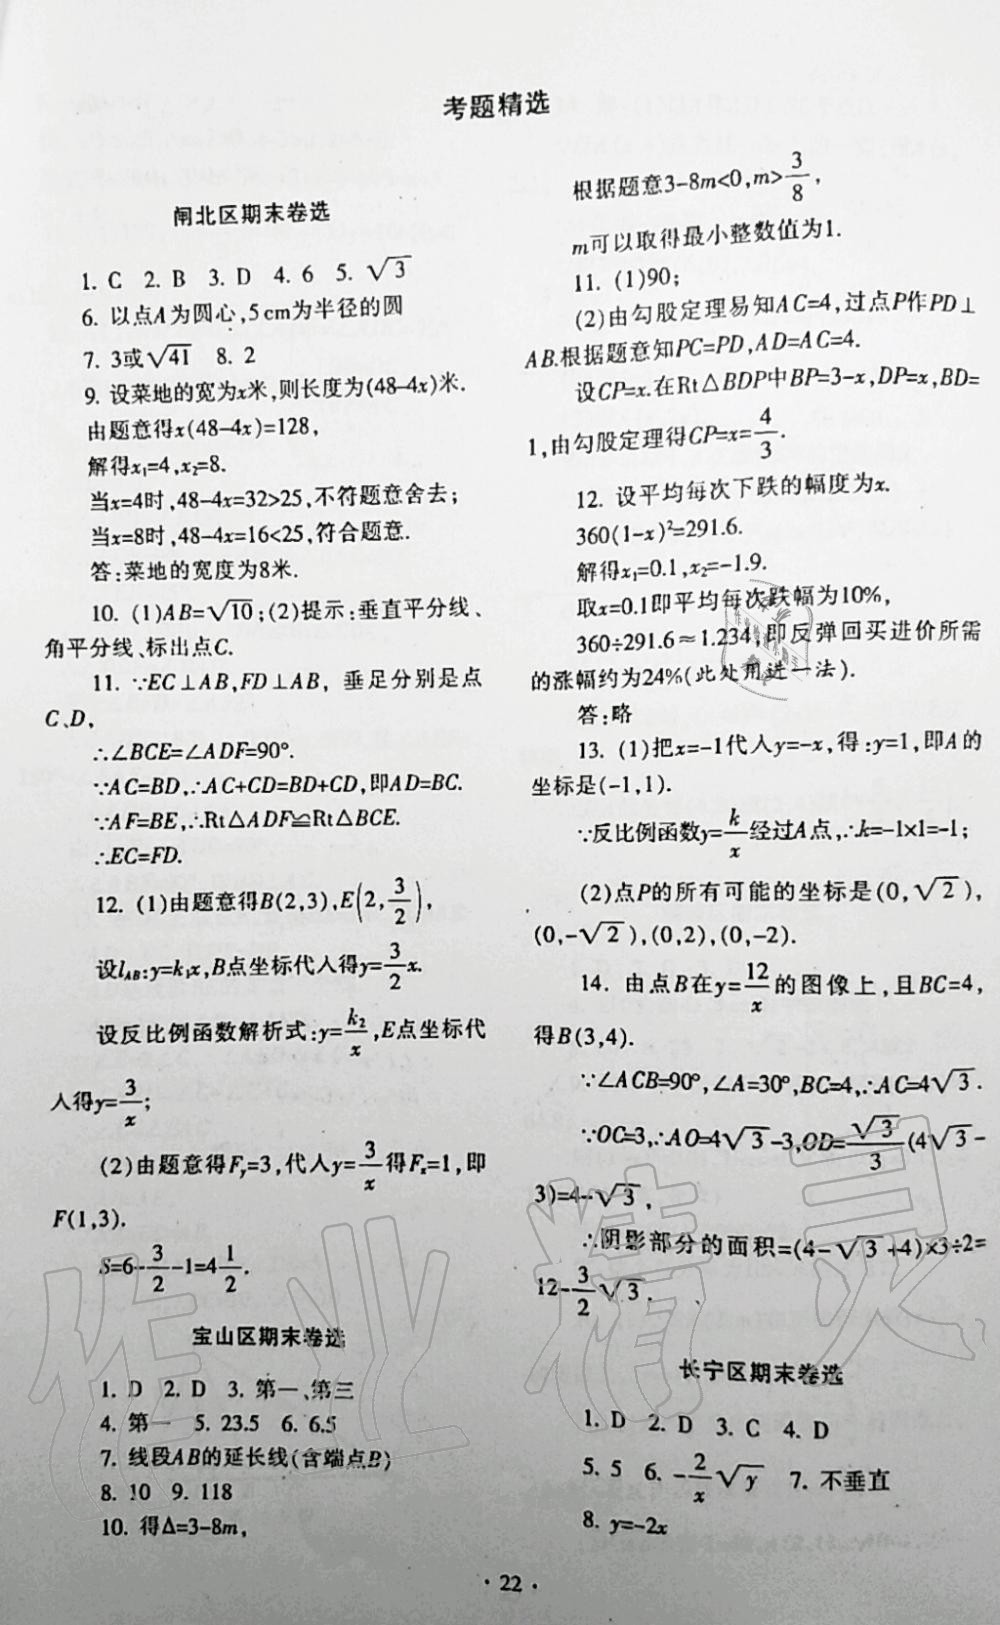 考题精选
闸北区期末卷选
1. C 2. B 3. D 4. 6 5. √3
6. 以点A为圆心,5cm为半径的圆
7. 3或√41 8. 2
9. 设菜地的宽为x米,则长度为(48–4x)米.
由题意得x(48–4x)=128,
解得x₁=4,x₂=8.
当x=4时,48–4x=32>25,不符题意舍去;
当x=8时,48–4x=16<25,符合题意.
答:菜地的宽度为8米.
10. (1)AB=√10;(2)提示:垂直平分线、
角平分线、标出点C.
11. ∵EC⊥AB,FD⊥AB, 垂足分别是点
C、D,
∴∠BCE=∠ADF=90°.
∵AC=BD,∴AC+CD=BD+CD,即AD=BC.
∵AF=BE,∴Rt△ADF≌Rt△BCE.
∴EC=FD.
12. (1)由题意得B(2,3),E(2,3/2),
设l_AB:y=k₁x,B点坐标代入得y=3/2x.
设反比例函数解析式:y=k₂/x,E点坐标代
入得y=3/x;
(2)由题意得Fy=3,代入y=3/x得Fx=1,即
F(1,3).
S=6–3/2–1=4 1/2.
宝山区期末卷选
1. D 2. D 3. 第一、第三
4. 第一 5. 23.5 6. 6.5
7. 线段AB的延长线(含端点B)
8. 10 9. 118
10. 得Δ=3–8m,
根据题意3–8m<0,m>3/8,
m可以取得最小整数值为1.
11. (1)90;
(2)由勾股定理易知AC=4,过点P作PD⊥
AB.根据题意知PC=PD,AD=AC=4.
设CP=x.在Rt△BDP中BP=3–x,DP=x,BD=
1,由勾股定理得CP=x=4/3.
12. 设平均每次下跌的幅度为x.
360(1–x)²=291.6.
解得x₁=0.1,x₂=–1.9.
取x=0.1即平均每次跌幅为10%,
360÷291.6≈1.234,即反弹回买进价所需
的涨幅约为24%(此处用进一法).
答:略
13. (1)把x=–1代入y=–x,得:y=1,即A的
坐标是(–1,1).
∵反比例函数y=k/x经过A点,∴k=–1×1=–1;
(2)点P的所有可能的坐标是(0,√2),
(0,–√2),(0,2),(0,–2).
14. 由点B在y=12/x的图像上,且BC=4,
得B(3,4).
∵∠ACB=90°,∠A=30°,BC=4,∴AC=4√3.
∵OC=3,∴AO=4√3–3,OD=√3/3(4√3–
3)=4–√3,
∴阴影部分的面积=(4–√3+4)×3÷2=
12–3/2√3.
长宁区期末卷选
1. D 2. D 3. C 4. D
5. 5 6. –2/x√y 7. 不垂直
8. y=–2x
·22·
作业精灵